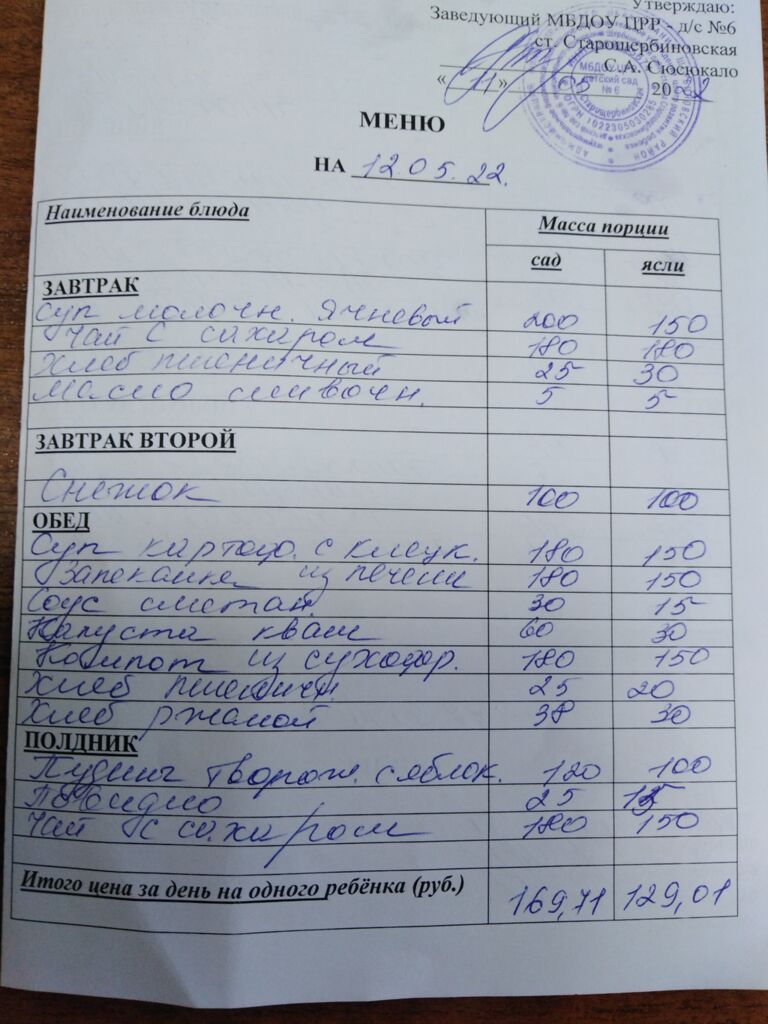 Утверждаю:
Заведующий МБДОУ ЦРР - д/с №6
ст. Старощербиновская
С.А. Сюсюкало
« 11 » 05 2022
МЕНЮ
НА 12.05.22.
Наименование блюда Масса порции
сад ясли
ЗАВТРАК
Суп молочн. Ячневый 200 150
Чай с сахаром 180 180
Хлеб пшеничный 25 30
Масло сливочн. 5 5
ЗАВТРАК ВТОРОЙ
Снежок 100 100
ОБЕД
Суп картоф. с клецк. 180 150
Запеканка из печени 180 150
Соус сметан. 30 15
Капуста кваш 60 30
Компот из сухофр. 180 150
Хлеб пшеничн. 25 20
Хлеб ржаной 38 30
ПОЛДНИК
Пудинг творож. с яблок. 120 100
Повидло 25 15
Чай с сахаром 180 150
Итого цена за день на одного ребёнка (руб.) 169,71 129,01